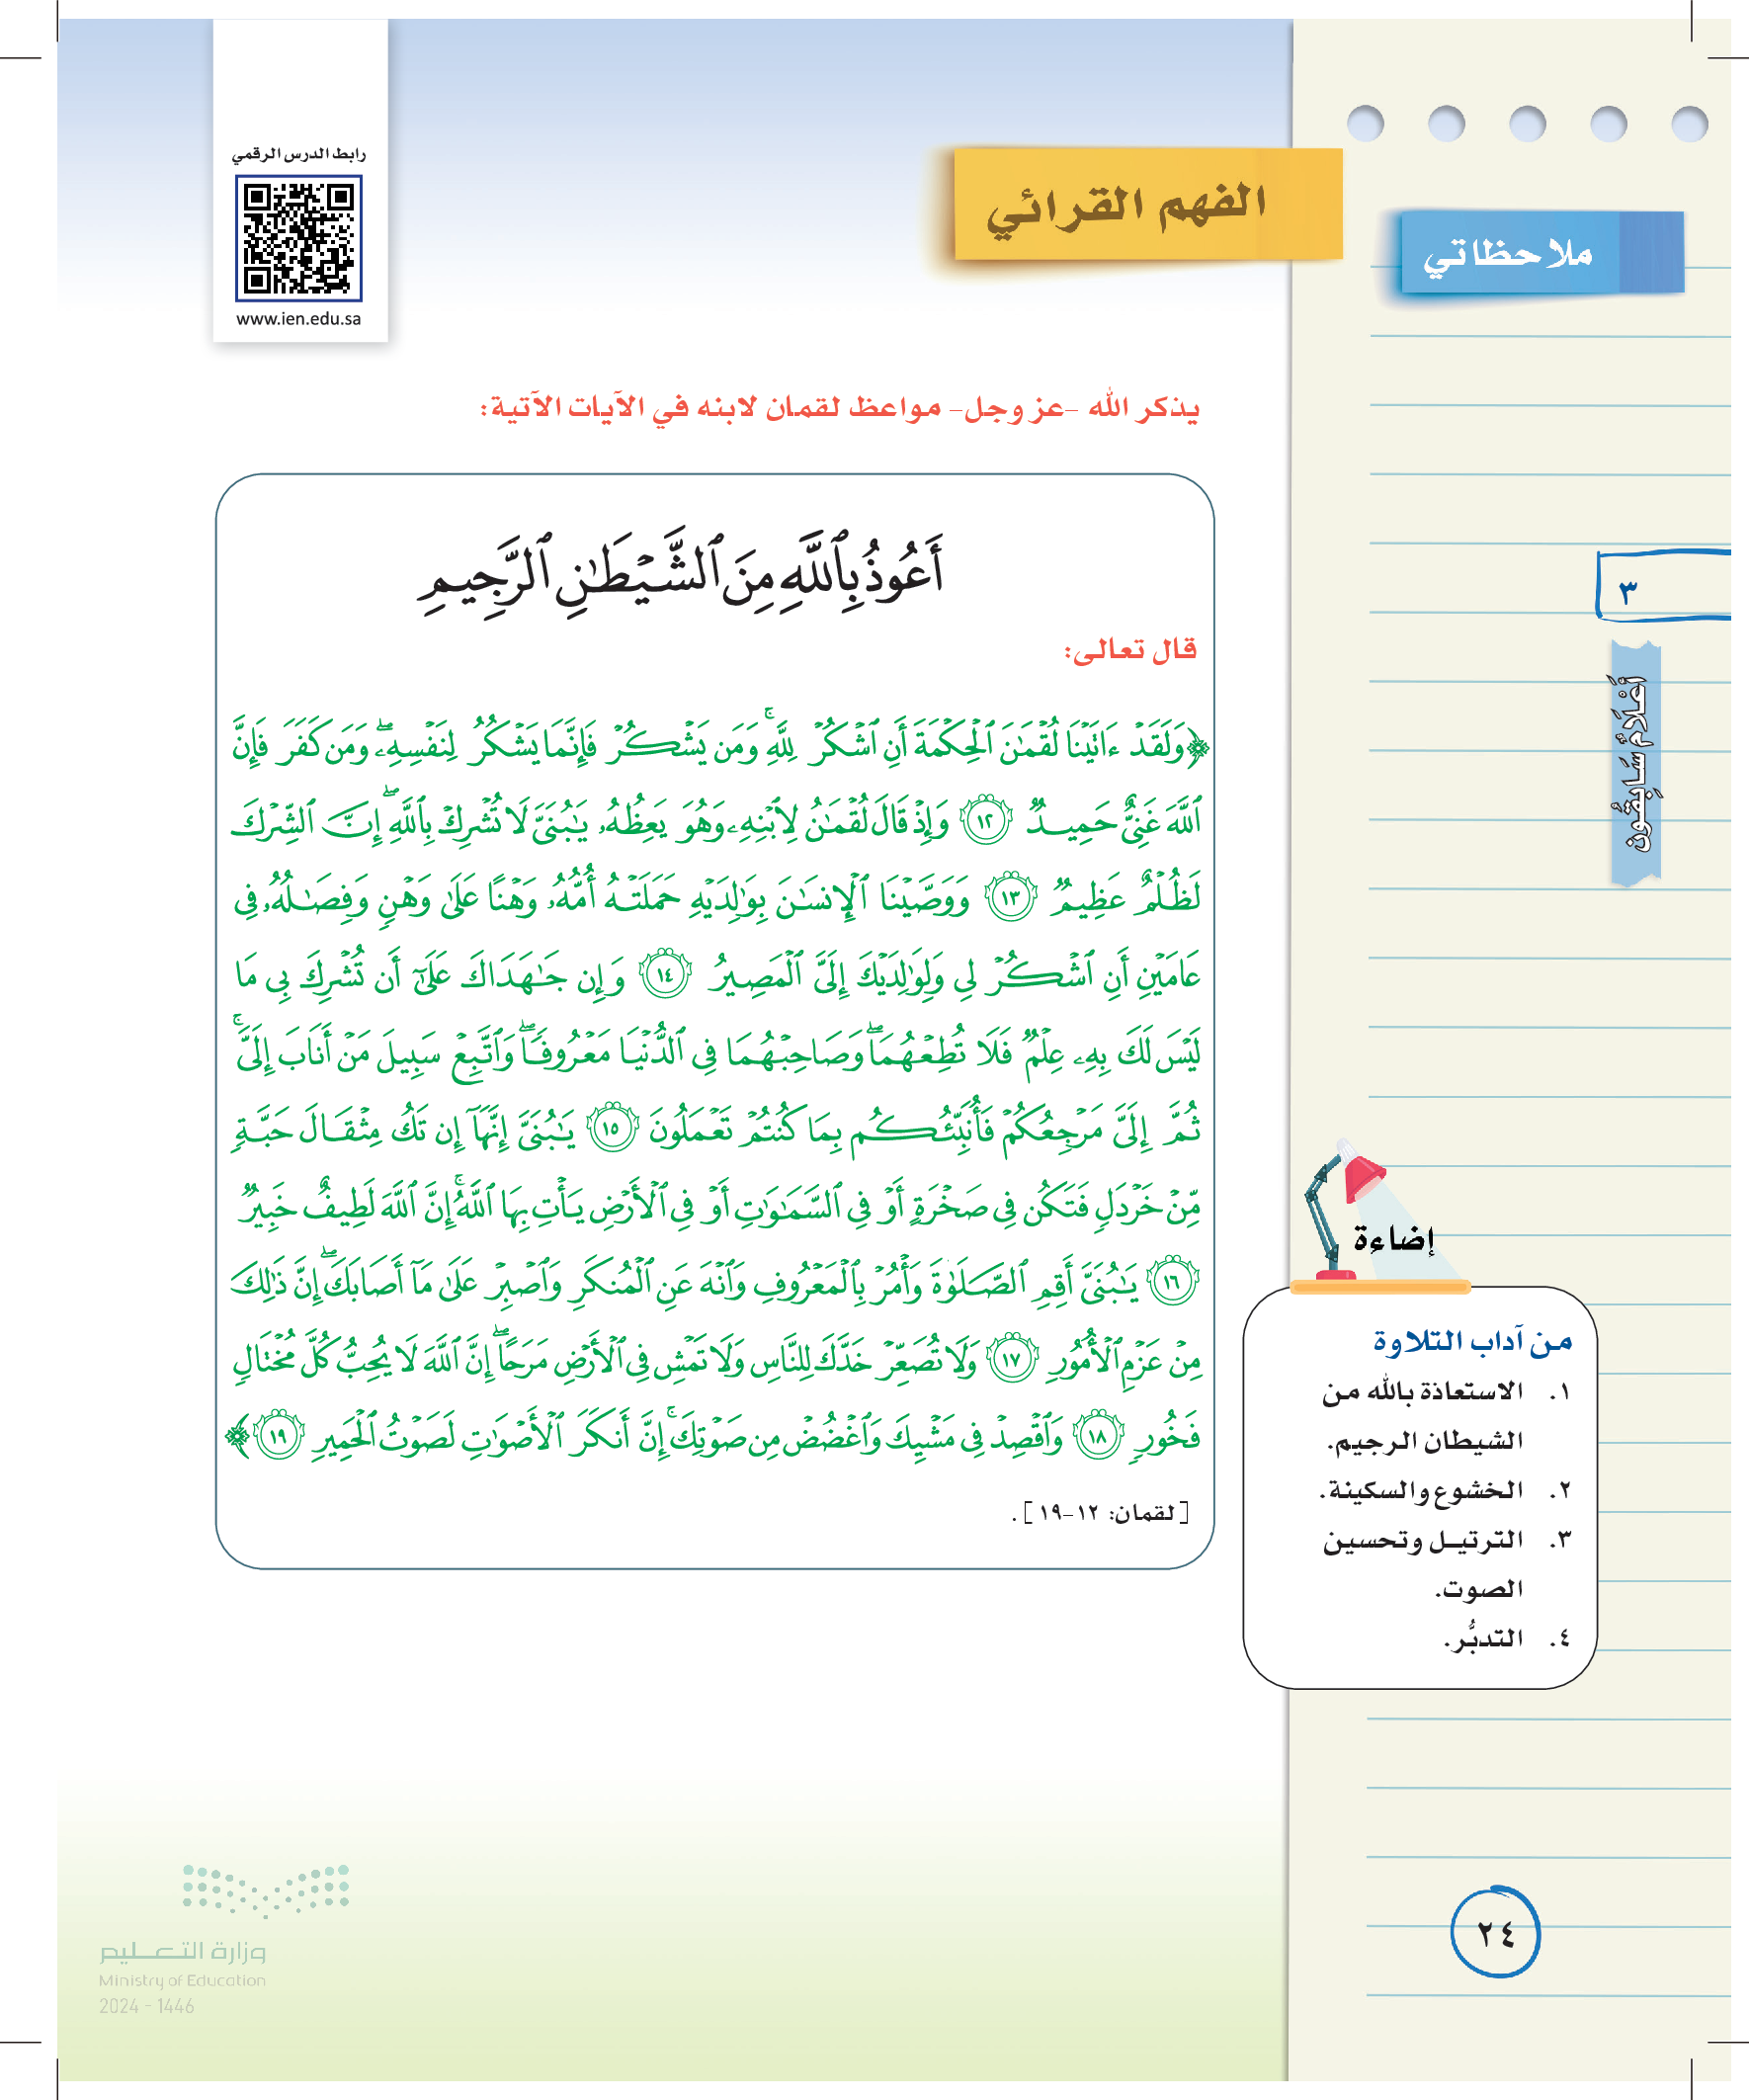 رابط الدرس الرقمي
www.ien.edu.sa
الفهم القرائي
ملاحظاتي
يذكر الله -عز وجل- مواعظ لقمان لابنه في الآيات الآتية:
أَعُوذُ بِٱللَّهِ مِنَ ٱلشَّيۡطَٰنِ ٱلرَّجِيمِ
قال تعالى:
﴿وَلَقَدۡ ءَاتَيۡنَا لُقۡمَٰنَ ٱلۡحِكۡمَةَ أَنِ ٱشۡكُرۡ لِلَّهِۚ وَمَن يَشۡكُرۡ فَإِنَّمَا يَشۡكُرُ لِنَفۡسِهِۦۖ وَمَن كَفَرَ فَإِنَّ
ٱللَّهَ غَنِيٌّ حَمِيدٞ ١٢ وَإِذۡ قَالَ لُقۡمَٰنُ لِٱبۡنِهِۦ وَهُوَ يَعِظُهُۥ يَٰبُنَيَّ لَا تُشۡرِكۡ بِٱللَّهِۖ إِنَّ ٱلشِّرۡكَ
لَظُلۡمٌ عَظِيمٞ ١٣ وَوَصَّيۡنَا ٱلۡإِنسَٰنَ بِوَٰلِدَيۡهِ حَمَلَتۡهُ أُمُّهُۥ وَهۡنًا عَلَىٰ وَهۡنٖ وَفِصَٰلُهُۥ فِي
عَامَيۡنِ أَنِ ٱشۡكُرۡ لِي وَلِوَٰلِدَيۡكَ إِلَيَّ ٱلۡمَصِيرُ ١٤ وَإِن جَٰهَدَاكَ عَلَىٰٓ أَن تُشۡرِكَ بِي مَا
لَيۡسَ لَكَ بِهِۦ عِلۡمٞ فَلَا تُطِعۡهُمَاۖ وَصَاحِبۡهُمَا فِي ٱلدُّنۡيَا مَعۡرُوفٗاۖ وَٱتَّبِعۡ سَبِيلَ مَنۡ أَنَابَ إِلَيَّۚ
ثُمَّ إِلَيَّ مَرۡجِعُكُمۡ فَأُنَبِّئُكُم بِمَا كُنتُمۡ تَعۡمَلُونَ ١٥ يَٰبُنَيَّ إِنَّهَآ إِن تَكُ مِثۡقَالَ حَبَّةٖ
مِّنۡ خَرۡدَلٖ فَتَكُن فِي صَخۡرَةٍ أَوۡ فِي ٱلسَّمَٰوَٰتِ أَوۡ فِي ٱلۡأَرۡضِ يَأۡتِ بِهَا ٱللَّهُۚ إِنَّ ٱللَّهَ لَطِيفٌ خَبِيرٞ
١٦ يَٰبُنَيَّ أَقِمِ ٱلصَّلَوٰةَ وَأۡمُرۡ بِٱلۡمَعۡرُوفِ وَٱنۡهَ عَنِ ٱلۡمُنكَرِ وَٱصۡبِرۡ عَلَىٰ مَآ أَصَابَكَۖ إِنَّ ذَٰلِكَ
مِنۡ عَزۡمِ ٱلۡأُمُورِ ١٧ وَلَا تُصَعِّرۡ خَدَّكَ لِلنَّاسِ وَلَا تَمۡشِ فِي ٱلۡأَرۡضِ مَرَحًاۖ إِنَّ ٱللَّهَ لَا يُحِبُّ كُلَّ مُخۡتَالٖ
فَخُورٖ ١٨ وَٱقۡصِدۡ فِي مَشۡيِكَ وَٱغۡضُضۡ مِن صَوۡتِكَۚ إِنَّ أَنكَرَ ٱلۡأَصۡوَٰتِ لَصَوۡتُ ٱلۡحَمِيرِ ١٩﴾
[لقمان: ١٢-١٩].
٣
أَعْلَامٌ سَابِقُون
إضاءة
من آداب التلاوة
١. الاستعاذة بالله من
الشيطان الرجيم.
٢. الخشوع والسكينة.
٣. الترتيل وتحسين
الصوت.
٤. التدبُّر.
٢٤
وزارة التعليم
Ministry of Education
2024 - 1446